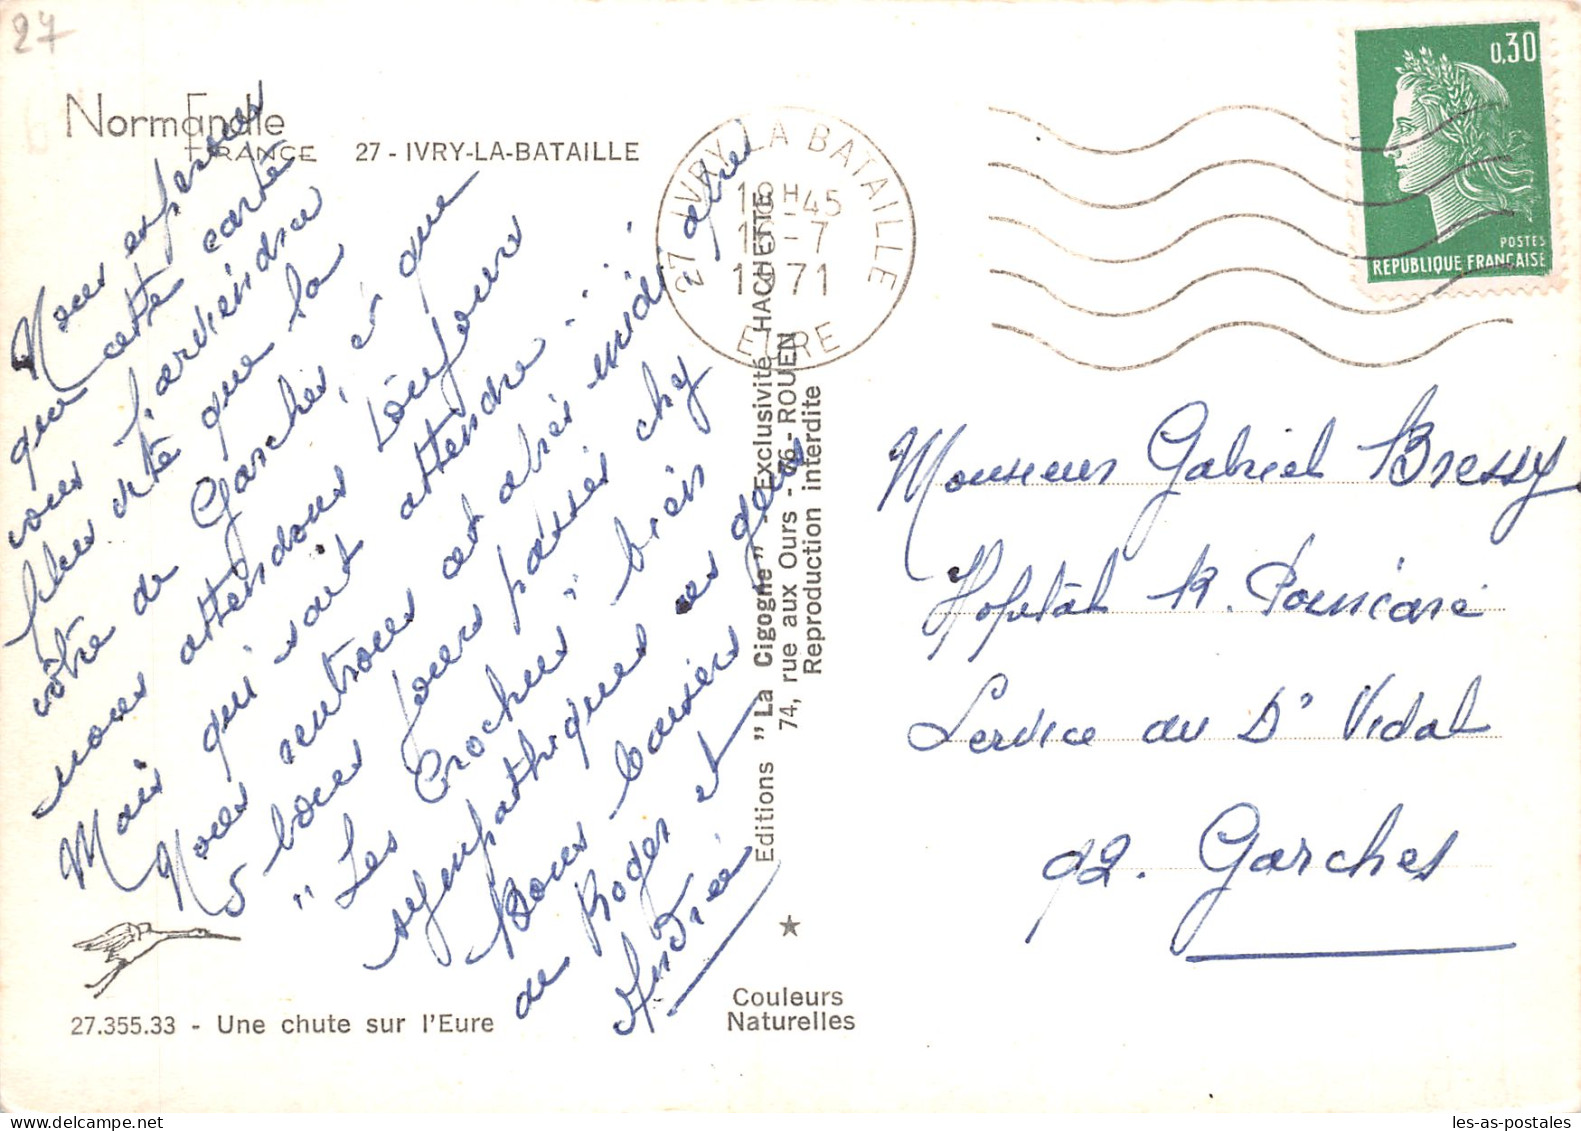 27
NormaNdie
FRANCE
27 - IVRY-LA-BATAILLE
27 IVRY-LA-BATAILLE
18H45
-7
1971
EURE
0,30
POSTES
REPUBLIQUE FRANÇAISE
Nous espérons
que cette carte
vous parviendra
plus vite que la
vôtre de Garches, et que
nous attendons toujours
Mais qui sait attendre -
Nous rentrons cet après midi après
5 bons jours passés chez
"Les Crochus" bien
sympathiques ces gens
Bons baisers
de Roger et
Andrée
Monsieur Gabriel Bressy
Hopital R. Poincaré
Service du Dr Vidal
92. Garches
Editions "La Cigogne" - Exclusivité HACHETTE
74, rue aux Ours - 76 - ROUEN
Reproduction interdite
Couleurs
Naturelles
27.355.33 - Une chute sur l'Eure
les-as-postales